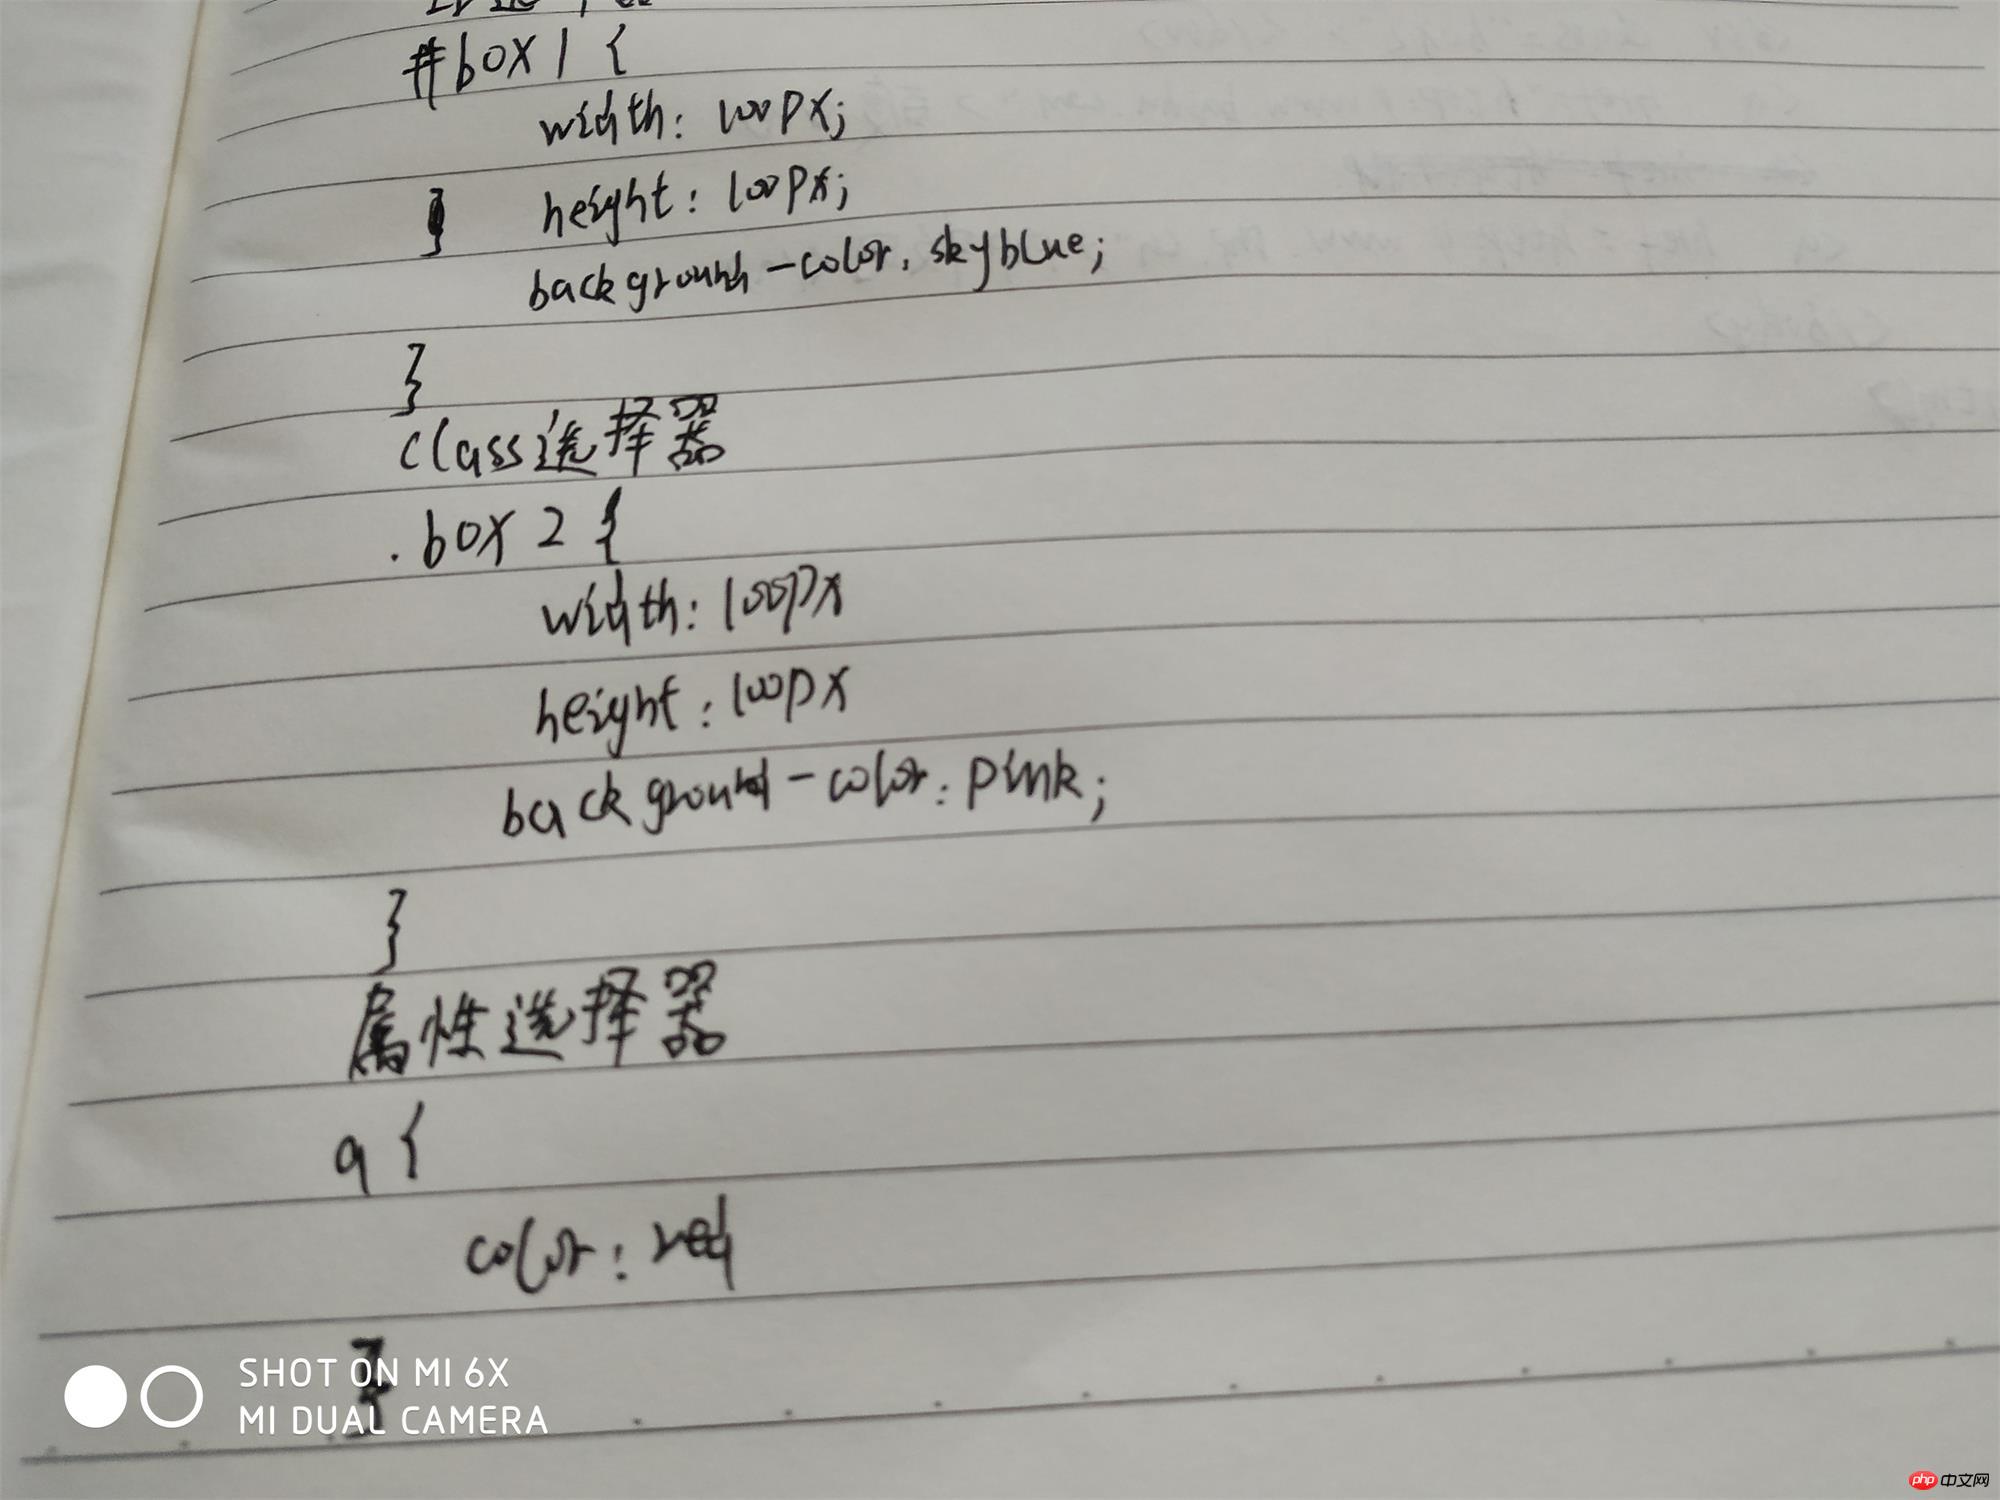 #box1 {
width: 100px;
} height: 100px;
background-color. skyblue;
}
class选择器
.box2 {
width: 100px
height: 100px
background-color: pink;
}
属性选择器
a {
color: red
}
SHOT ON MI 6X
MI DUAL CAMERA
php 中文网